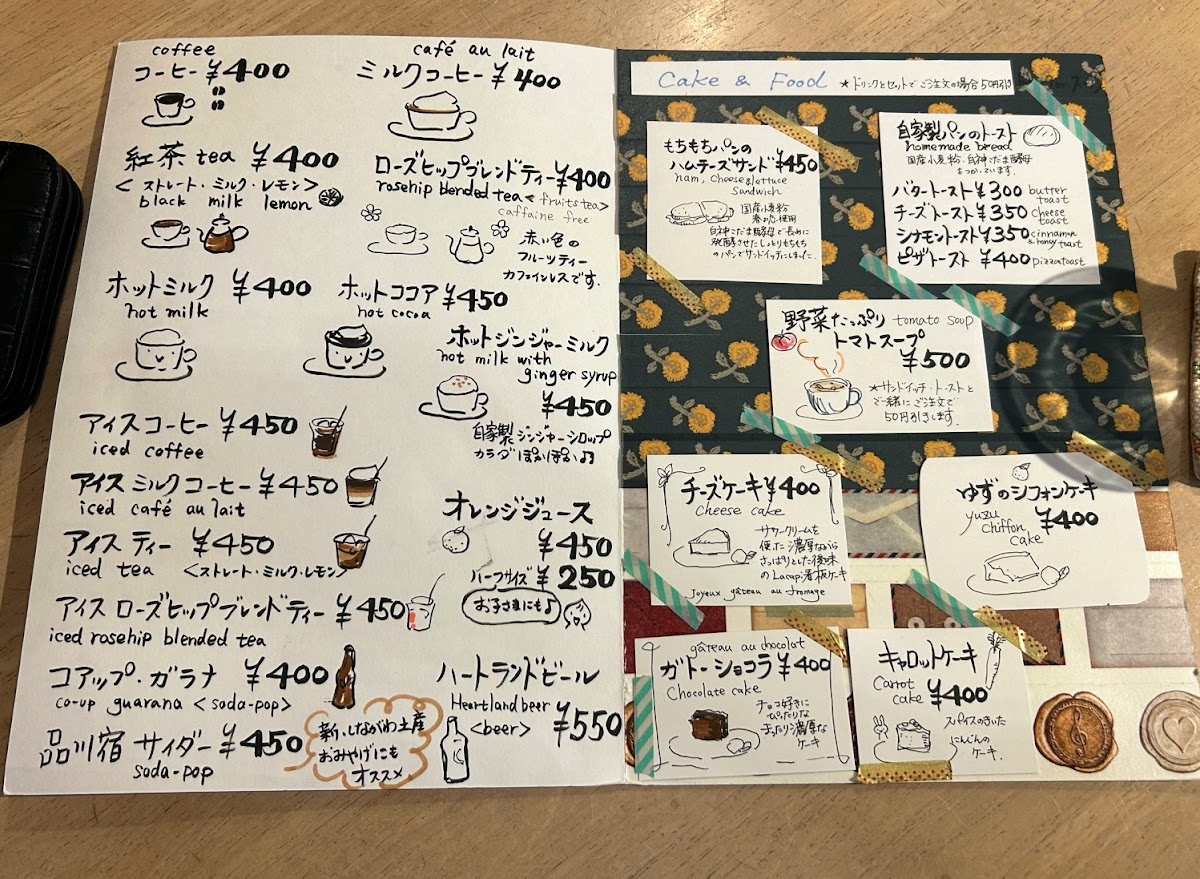 coffee
コーヒー ¥400
café au lait
ミルクコーヒー ¥400
紅茶 tea ¥400
< ストレート・ミルク・レモン >
black milk lemon
ローズヒップブレンドティー ¥400
rosehip blended tea < fruits tea >
caffaine free
赤い色の
フルーツティー
カフェインレスです.
ホットミルク ¥400
hot milk
ホットココア ¥450
hot cocoa
ホットジンジャーミルク
hot milk with
ginger syrup
¥450
自家製ジンジャーシロップ
カラダぽかぽか♫
アイスコーヒー ¥450
iced coffee
アイスミルクコーヒー ¥450
iced café au lait
アイスティー ¥450
iced tea <ストレート・ミルク・レモン>
アイスローズヒップブレンドティー ¥450
iced rosehip blended tea
オレンジジュース
¥450
ハーフサイズ ¥250
お子さまにも♪
コアップ・ガラナ ¥400
co-up guarana < soda-pop >
品川宿 サイダー ¥450
soda-pop
新・しながわ土産
おみやげにも
オススメ
ハートランドビール
Heartland beer
<beer> ¥550
Cake & Food ★ドリンクとセットでご注文の場合50円引き
もちもちパンの
ハムチーズサンド ¥450
ham, cheese & lettuce
sandwich
国産小麦粉
春の恋使用
白神こだま酵母で長めに
発酵させたしっとりもちもち
のパンでサンドイッチにしました.
自家製パンのトースト
homemade bread
国産小麦粉・白神こだま酵母
をつかっています.
バタートースト ¥300 butter toast
チーズトースト ¥350 cheese toast
シナモントースト ¥350 cinnamon & honey toast
ピザトースト ¥400 pizza toast
野菜たっぷり tomato soup
トマトスープ
¥500
★サンドイッチ・トーストと
ご一緒にご注文で
50円引きします.
チーズケーキ ¥400
cheese cake
サワークリームを
使った濃厚ながら
さっぱりとした後味
のLacapi看板ケーキ
joyeux gâteau au fromage
ゆずのシフォンケーキ
yuzu chiffon cake ¥400
gâteau au chocolat
ガトーショコラ ¥400
Chocolate cake
チョコ好きに
ぴったりな
まったり濃厚な
ケーキ
キャロットケーキ
Carrot cake ¥400
スパイスのきいた
にんじんの
ケーキ.